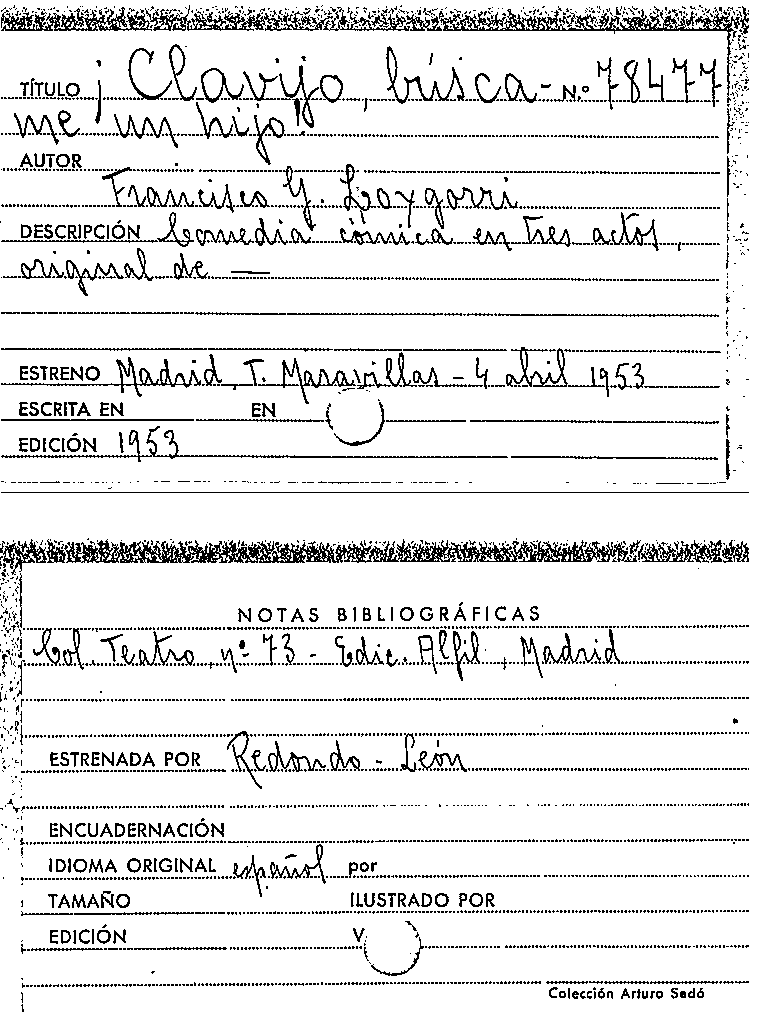 TÍTULO ¡Clavijo, búsca- N.º 78477
me un hijo!
AUTOR
Francisco G. Loygorri
DESCRIPCIÓN Comedia cómica en tres actos,
original de —
ESTRENO Madrid, T. Maravillas - 4 abril 1953
ESCRITA EN EN
EDICIÓN 1953
NOTAS BIBLIOGRÁFICAS
Col. Teatro, nº 73 - Edic. Alfil, Madrid
ESTRENADA POR Redondo - León
ENCUADERNACIÓN
IDIOMA ORIGINAL español por
TAMAÑO ILUSTRADO POR
EDICIÓN V
Colección Arturo Sedó